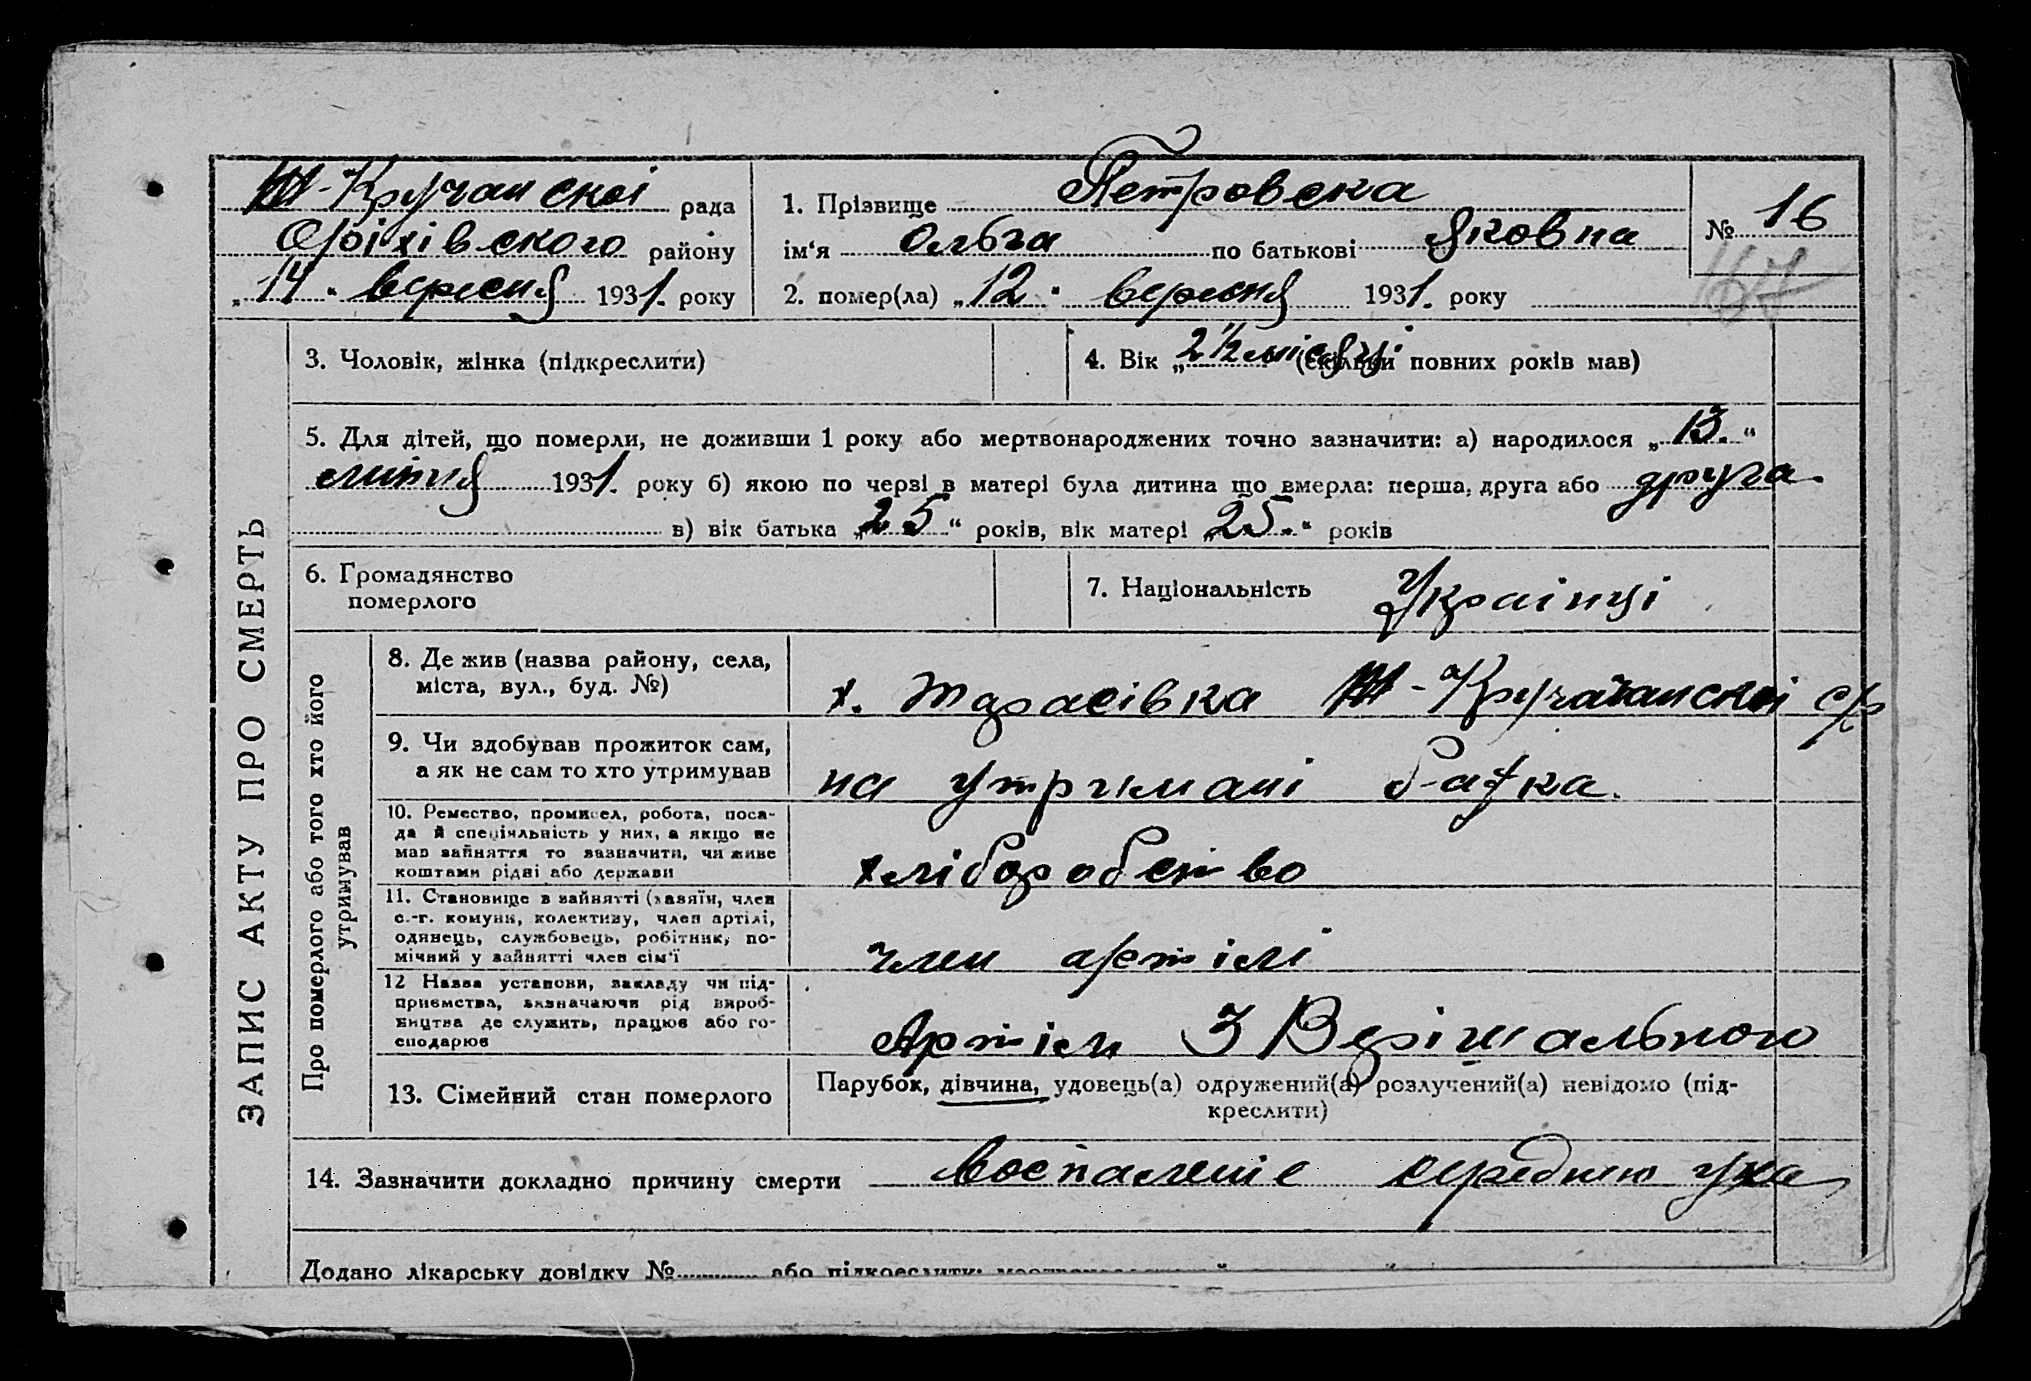 Ш-Кручанскоі рада
Оріхівского району
„14“ вересня 1931. року
1. Прізвище Петровска
ім‘я Ольга по батькові Яковна
2. помер(ла) „12“ вересня 1931. року
№ 16
167
ЗАПИС АКТУ ПРО СМЕРТЬ
3. Чоловік, жінка (підкреслити)
4. Вік „2 ½ місяці (скільки повних років мав)
5. Для дітей, що померли, не доживши 1 року або мертвонароджених точно зазначити: а) народилося „13.“
липня 1931. року б) якою по черзі в матері була дитина що вмерла: перша, друга або друга
в) вік батька „25“ років, вік матері „25.“ років
6. Громадянство
померлого
7. Національність Украінці
Про померлого або того хто його
утримував
8. Де жив (назва району, села,
міста, вул., буд. №)
х. Тарасівка Ш-Кручанскоі с/р
9. Чи здобував прожиток сам,
а як не сам то хто утримував
на утримані батка.
10. Ремество, промисел, робота, поса-
да й спеціяльність у них, а якщо не
мав зайняття то зазначити, чи живе
коштами рідні або держави
хліборобство
11. Становище в зайнятті (хазяїн, член
с.-г. комуни, колективу, член артілі,
одинець, службовець, робітник, по-
мічний у зайнятті член сім‘ї
член артілі
12 Назва установи, закладу чи під-
приємства, зазначаючи рід вироб-
ництва де служить, працює або го-
сподарює
Артіль З Вирішального
13. Сімейний стан померлого
Парубок, дівчина, удовець(а) одружений(а) розлучений(а) невідомо (під-
креслити)
14. Зазначити докладно причину смерти воспаленіе середнего уха
Додано лікарську довідку № або підкреслити: